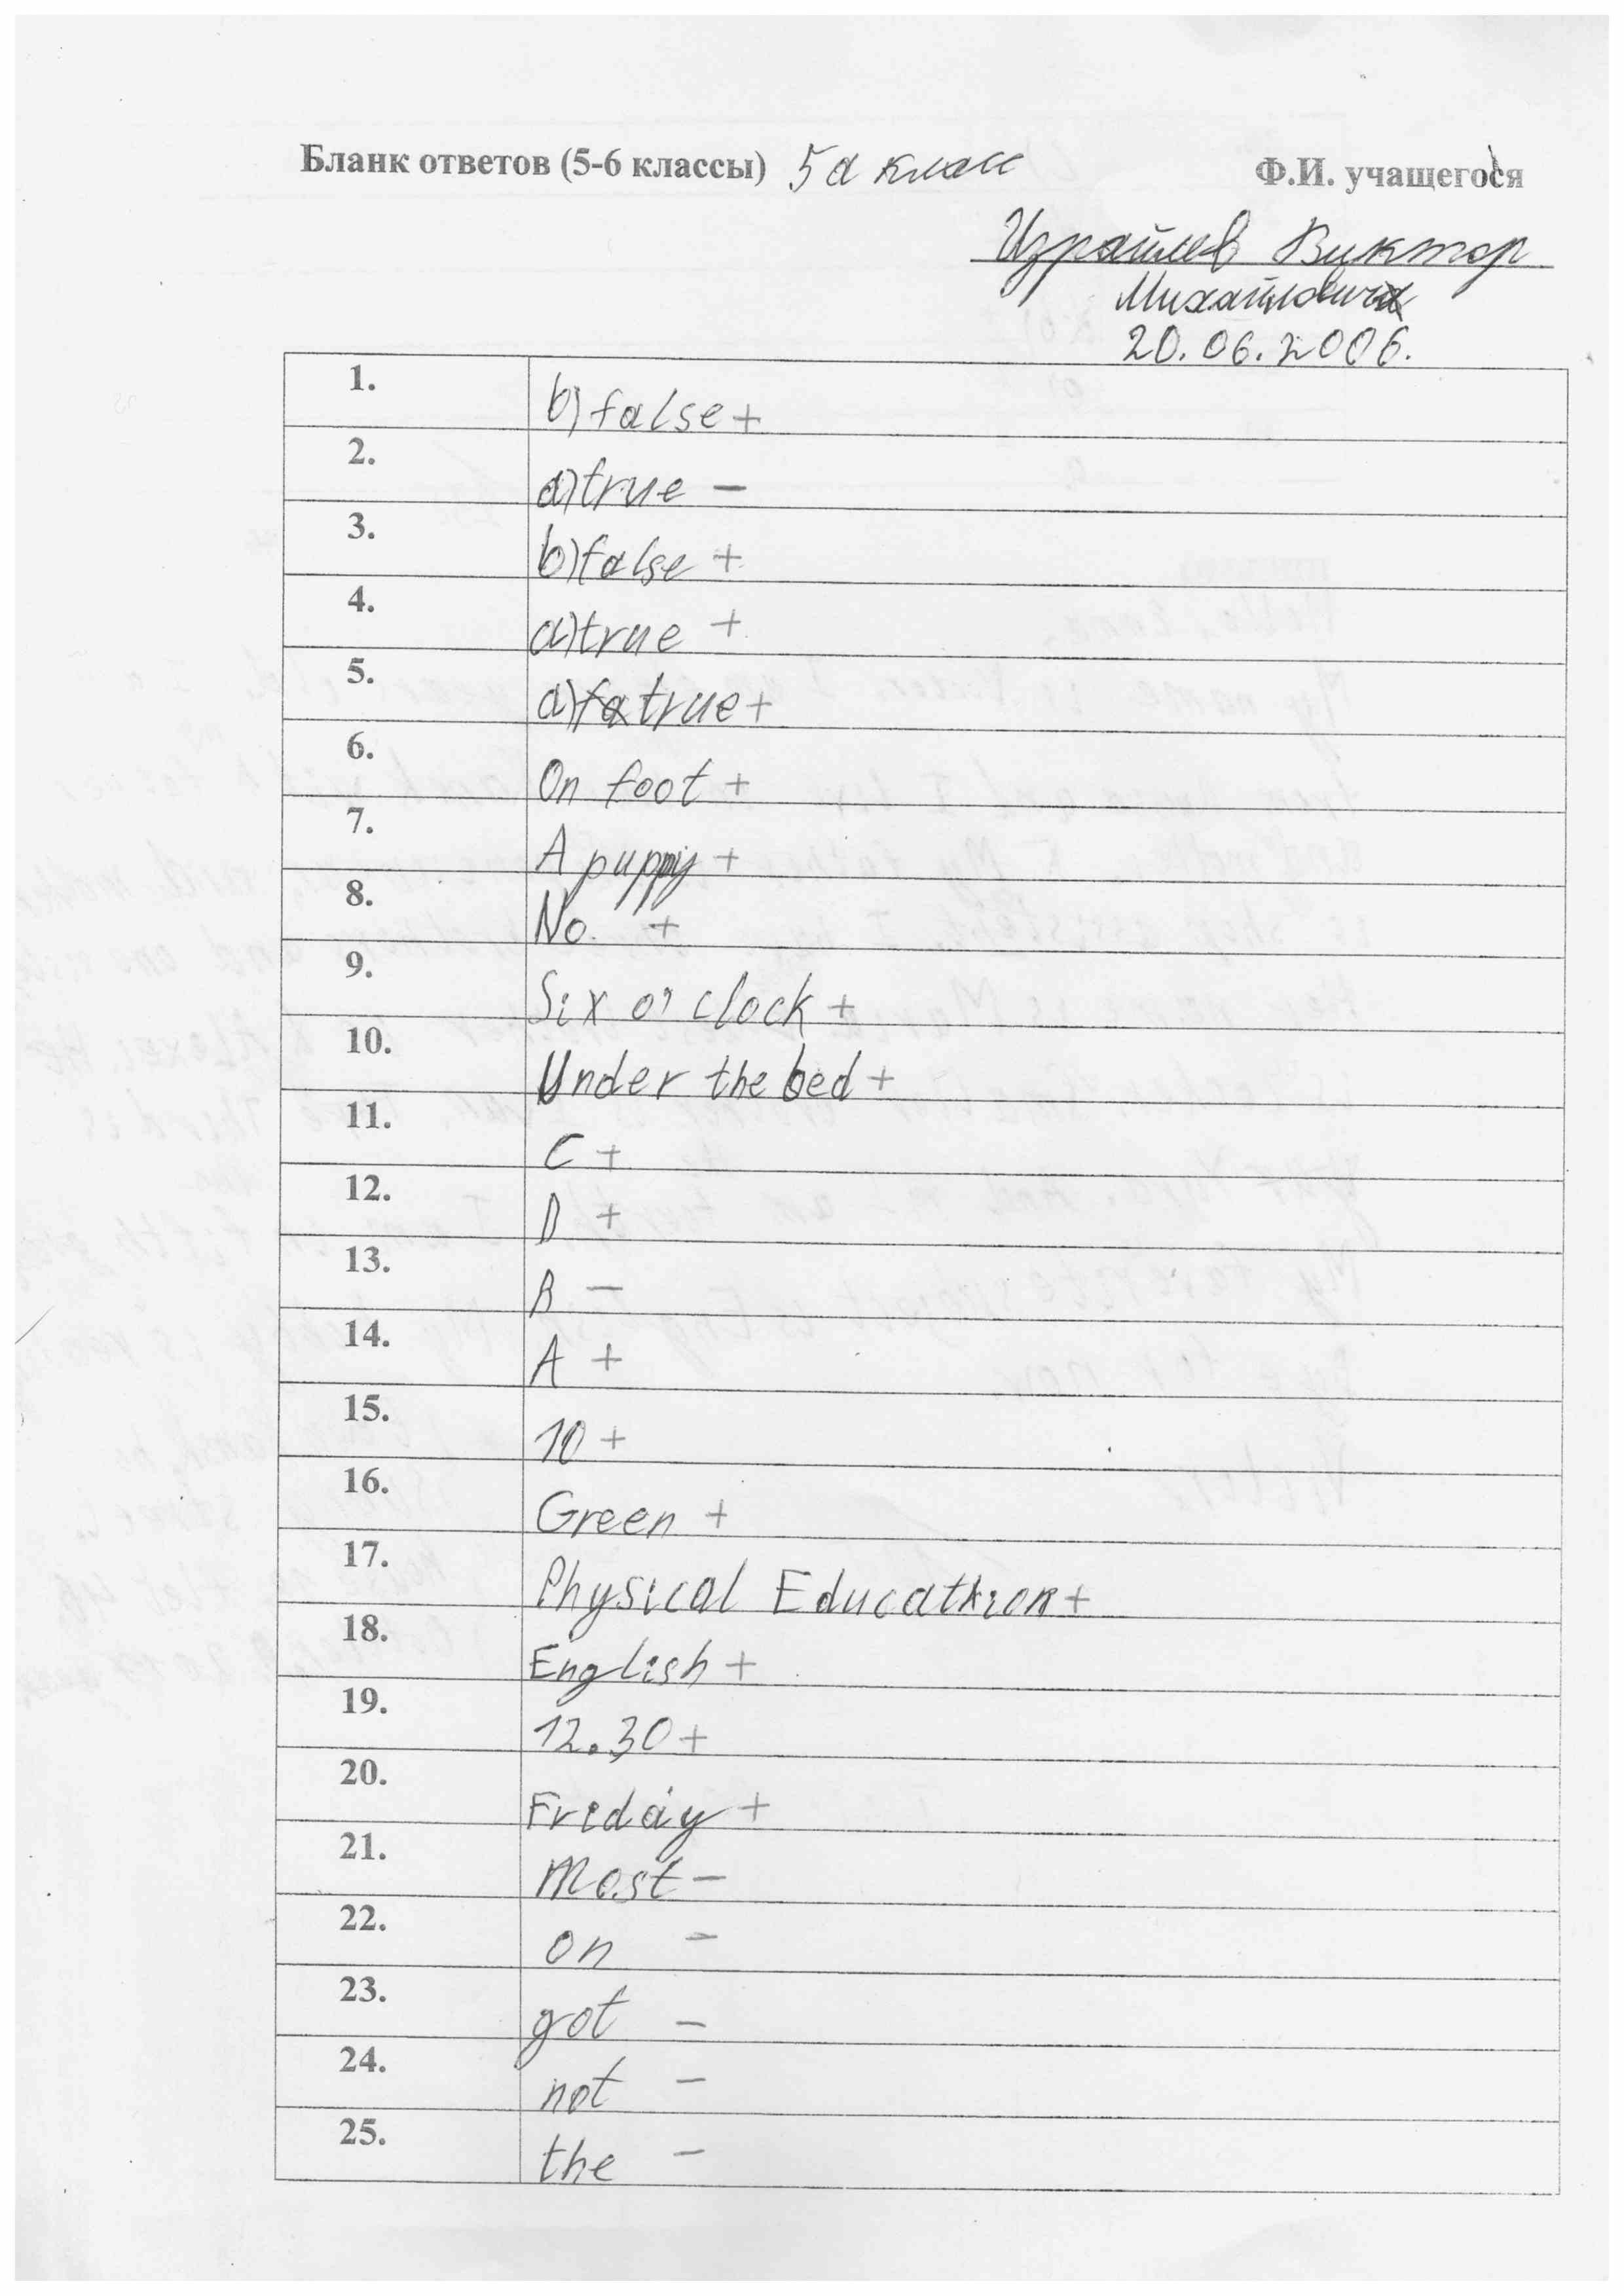 Бланк ответов (5-6 классы) 5 а класс
Ф.И. учащегося
Израйлев Виктор
Михайлович
20.06.2006.
1. b) false +
2. a) true –
3. b) false +
4. a) true +
5. a) true +
6. On foot +
7. A puppy +
8. No. +
9. Six o' clock +
10. Under the bed +
11. C +
12. D +
13. B –
14. A +
15. 10 +
16. Green +
17. Physical Education +
18. English +
19. 12.30 +
20. Friday +
21. Most –
22. on –
23. got –
24. not –
25. the –